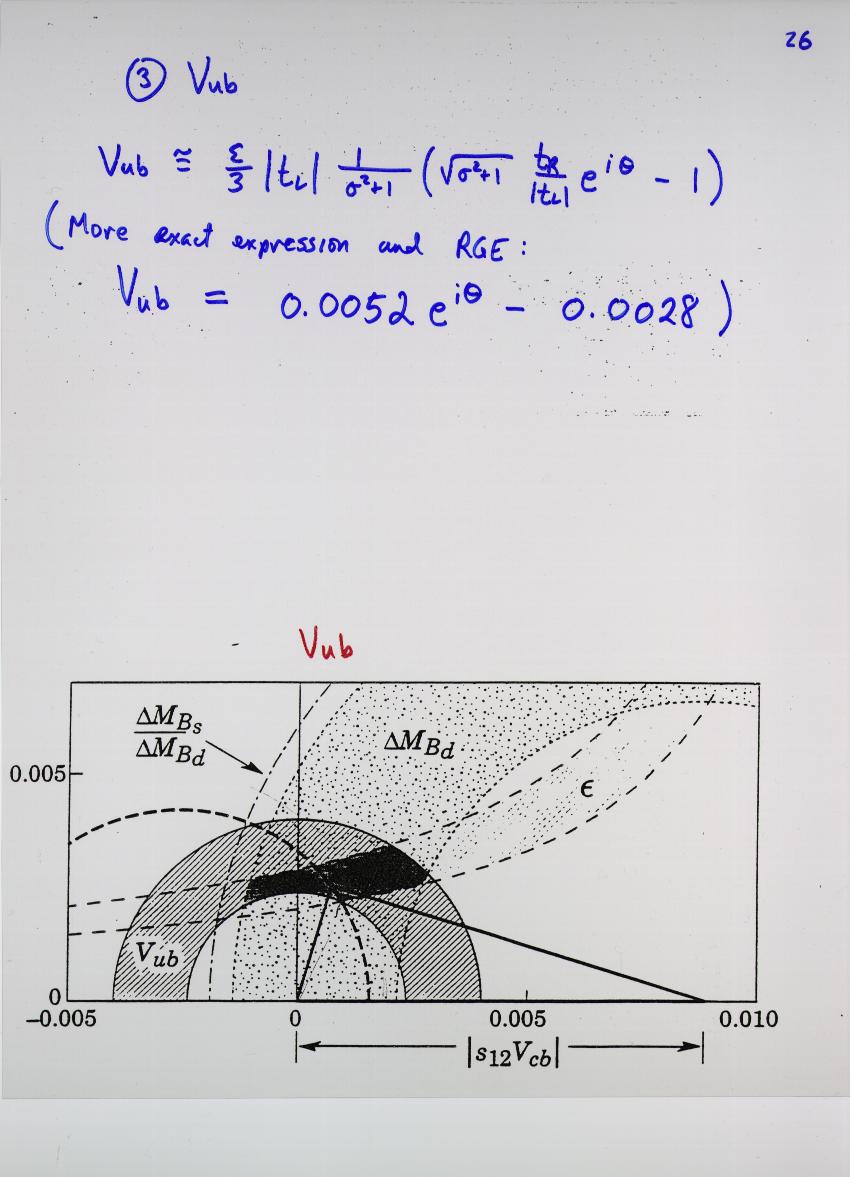 26
③ Vub
Vub ≅ ε/3 |tL| 1/(σ²+1) (√(σ²+1) tR/|tL| e^{iθ} - 1)
(More exact expression and RGE:
Vub = 0.0052 e^{iθ} - 0.0028)
Vub
ΔM_{Bs}/ΔM_{Bd}
ΔM_{Bd}
0.005
ϵ
V_{ub}
0
-0.005 0 0.005 0.010
|s_{12}V_{cb}|